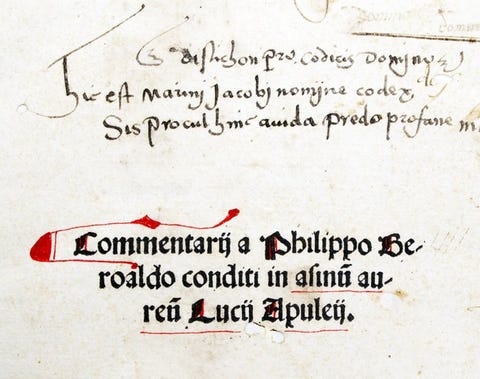 distichon pro codicis domino
Hic est Marini Jacobi nomine codex
Sis procul hinc auida predo profane m
Commentarij a Philippo Be-
roaldo conditi in asinū au-
reū Lucij Apuleij.